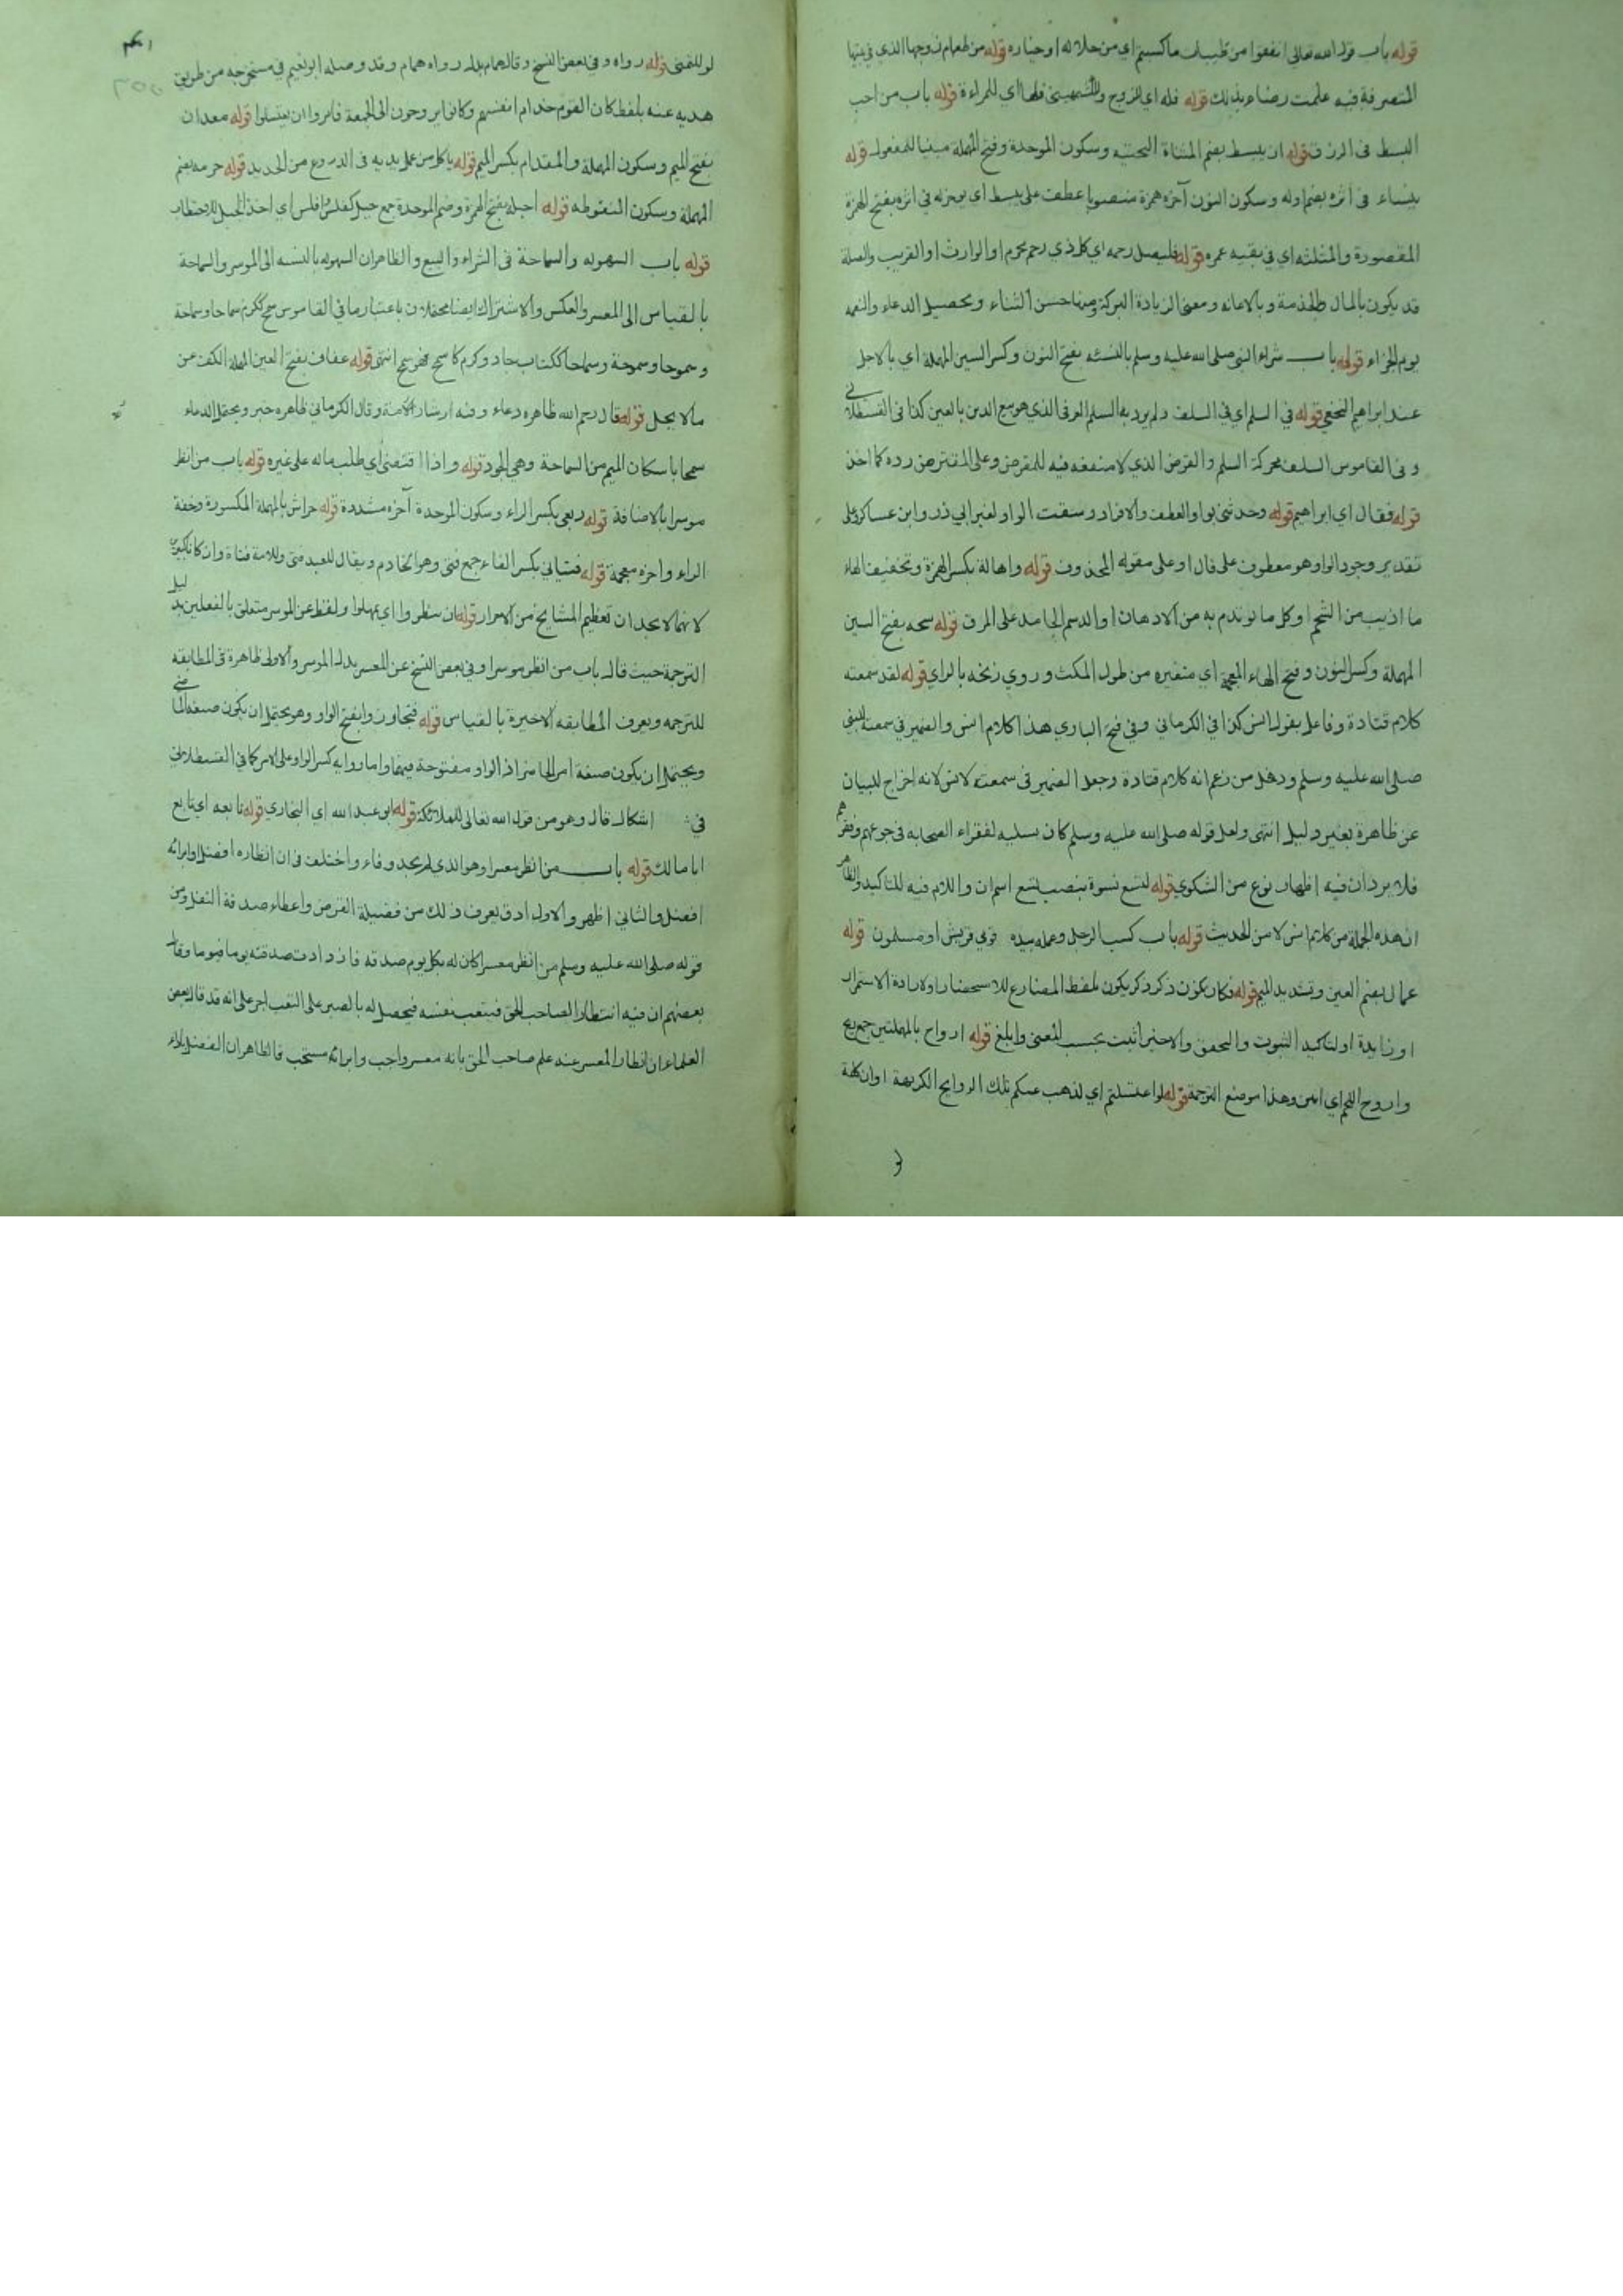 قوله باب قول الله تعالى انفقوا من طيبات ما كسبتم اي من حلاله او خياره قوله من طعام زوجها الذي في بيتها
المتصرفة فيه علمت رضاه بذلك قوله فله اي للزوج وللكشميهني فلها اي للمراءة قوله باب من احب
البسط في الرزق قوله ان يبسط بضم المثناة التحتيه وسكون الموحدة وفتح المهملة مبنيا للمفعول قوله
ينساء في اثره بضم اوله وسكون النون آخره همزة منصوبا عطف على يبسط اي يوخر له في اثره بفتح الهمزة
المقصورة والمثلثه اي في بقيه عمره قوله فليصل رحمه اي كل ذي رحم محرم او الوارث او القريب والصلة
قد يكون بالمال والخدمة وبالاعانه ومعنى الزيادة البركة ومنها حسن الثناء وتحصيل الدعاء والنعمه
يوم الجزاء قوله باب شراء النبى صلى الله عليه وسلم بالنسئه بفتح النون وكسر السين المهملة اي بالاجل
عند ابراهيم النخعي قوله في السلم اي في السلف ولم يرد به السلم العرفي الذي هو بيع الدين بالعين كذا في القسطلاني
وفى القاموس السلف محركة السلم والقرض الذي لا منفعه فيه للمقرض وعلى المقترض رده كما اخذ
قوله فقال اي ابراهيم قوله وحدثنى بواو العطف والافراد وسقت الواو لغير ابي ذر وابن عساكر وعلى
تقدير وجود الواو هو معطوف على قال او على مقوله المحذوف قوله واهالة بكسر الهمزة وتخفيف الهاء
ما اذيب من الشحم او كل ما يوتدم به من الادهان او الدسم الجامد على المرق قوله سنحه بفتح السين
المهملة وكسر النون وفتح الخاء المعجمة اي متغيره من طول المكث وروي زنخه بالزاي قوله لقد سمعته
كلام قتادة وفاعل يقول انس كذا في الكرماني وفي فتح الباري هذا كلام انس والضمير في سمعته للنبى
صلى الله عليه وسلم وذهل من زعم انه كلام قتادة وجعل الضمير فى سمعته لانس لانه اخراج للبيان
عن ظاهره بغير دليل انتهى ولعل قوله صلى الله عليه وسلم كان تسليه لفقراء الصحابه فى جوعهم وفقرهم
فلا يرد ان فيه اظهار نوع من الشكوي قوله لتسع نسوة بنصب لتسع اسم ان واللام فيه للتاكيد والظاهر
ان هذه الجملة من كلام انس لا من الحديث قوله باب كسب الرجل وعمله بيده قومي قريش او مسلمون قوله
عمال بضم العين وتشديد الميم قوله فكان يكون ذكر يكون بلفظ المضارع للاستحضار او لارادة الاستمرار
او زايدة او لتاكيد الثبوت والتحقق والاخير اثبت بحسب المعنى وابلغ قوله ارواح بالمهملتين جمع ريح
واروح اللحم اي انتن وهذا موضع الترجمة قوله لو اغتسلتم اي لذهب عنكم تلك الروايح الكريهة او ان كلمة
لو للتمنى قوله رواه وفي بعض النسخ وقال همام بدل رواه همام وقد وصله ابو نعيم في مستخرجه من طريق
هديه عنه بلفظ كان القوم خدام انفسهم وكانوا يروحون الى الجمعة فامروا ان يغتسلوا قوله معدان
بفتح الميم وسكون المهملة والمقدام بكسر الميم قوله ياكل من عمل يديه فى الدروع من الحديد قوله حزمه بضم
المهملة وسكون المنقوطه قوله احبله بفتح الهمزة وضم الموحدة جمع حبل كفلس وافلس اي اخذ الحبل للاحتطاب
قوله باب السهوله والسماحة فى الشراء والبيع والظاهر ان السهوله بالنسبه الى الموسر والسماحة
بالقياس الى المعسر والعكس والاشتراك ايضا محتملان باعتبار ما في القاموس سمح ككرم سماحا وسماحة
وسموحا وسموحة وسماحا ككتاب جاد وكرم كاسمح فهو سمح انتهى قوله عفاف بفتح العين المهملة الكف عن
مالا يحل قوله قال رحم الله ظاهره دعاء وفيه ارشاد الامة وقال الكرماني ظاهره خبر ويحتمل الدعاء
سمحا باسكان الميم من السماحة وهي الجود قوله واذا اقتضى اي طلب ماله على غيره قوله باب من انظر
موسرا بالاضافة قوله ربعي بكسر الراء وسكون الموحدة آخره مشددة قوله حراش بالمهملة المكسورة وخفة
الراء واخره معجمة قوله فتياني بكسر الفاء جمع فتى وهو الخادم ويقال للعبد فتى وللامة فتاة وان كانا كبيرين
قوله ان ينظروا اي يمهلوا ولفظ عن الموسر متعلق بالفعلين بدليل
الترجمة حيث قال باب من انظر موسرا وفي بعض النسخ عن المعسر بدل الموسر والاولى ظاهرة في المطابقه
للترجمه ويعرف المطابقه الاخيرة بالقياس قوله فتجاوزوا بفتح الواو وهو يحتمل ان يكون صيغه الماضي
ويحتمل ان يكون صيغة امر الحاضر اذ الواو مفتوحة فيهما واما روايه كسر الواو على الامر كما في القسطلاني
في اشكال قال وهو من قول الله تعالى للملائكة قوله ابو عبد الله اي البخاري قوله تابعه اي تابع
ابا مالك قوله باب من انظر معسرا وهو الذي لم يجد وفاء واختلف في ان انظاره افضل او ابرائه
افضل والثاني اظهر والاول ادق يعرف ذلك من فضيلة القرض واعطاء صدقة النفل ومن
قوله صلى الله عليه وسلم من انظر معسرا كان له بكل يوم صدقه يوما فيوما وقال
بعضهم ان فيه انتظارا لصاحب الحق فيتعب نفسه فيحصل له بالصبر على التعب اجر على انه قد قال بعض
العلماء ان انظار المعسر عند علم صاحب الحق بانه معسر واجب وابرائه مستحب فالظاهر ان الفضل